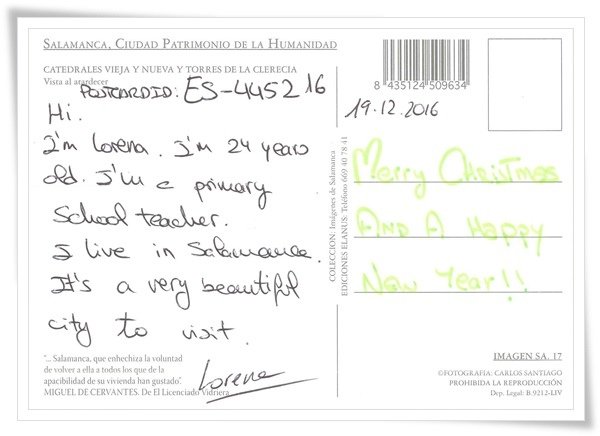 SALAMANCA, CIUDAD PATRIMONIO DE LA HUMANIDAD
CATEDRALES VIEJA Y NUEVA Y TORRES DE LA CLERECIA
Vista al atardecer
POSTCARDID: ES-445216
Hi.
I'm Lorena. I'm 24 years
old. I'm a primary
School teacher.
I live in Salamanca.
It's a very beautiful
city to visit.
Lorena
"... Salamanca, que enhechiza la voluntad
de volver a ella a todos los que de la
apacibilidad de su vivienda han gustado".
MIGUEL DE CERVANTES. De El Licenciado Vidriera
COLECCION: Imágenes de Salamanca
EDICIONES ELANUS: Teléfono 669 40 78 41
8 435124 509634
19.12.2016
Merry Christmas
And A Happy
New Year!!
IMAGEN SA. 17
©FOTOGRAFIA: CARLOS SANTIAGO
PROHIBIDA LA REPRODUCCIÓN
Dep. Legal: B.9212-LIV